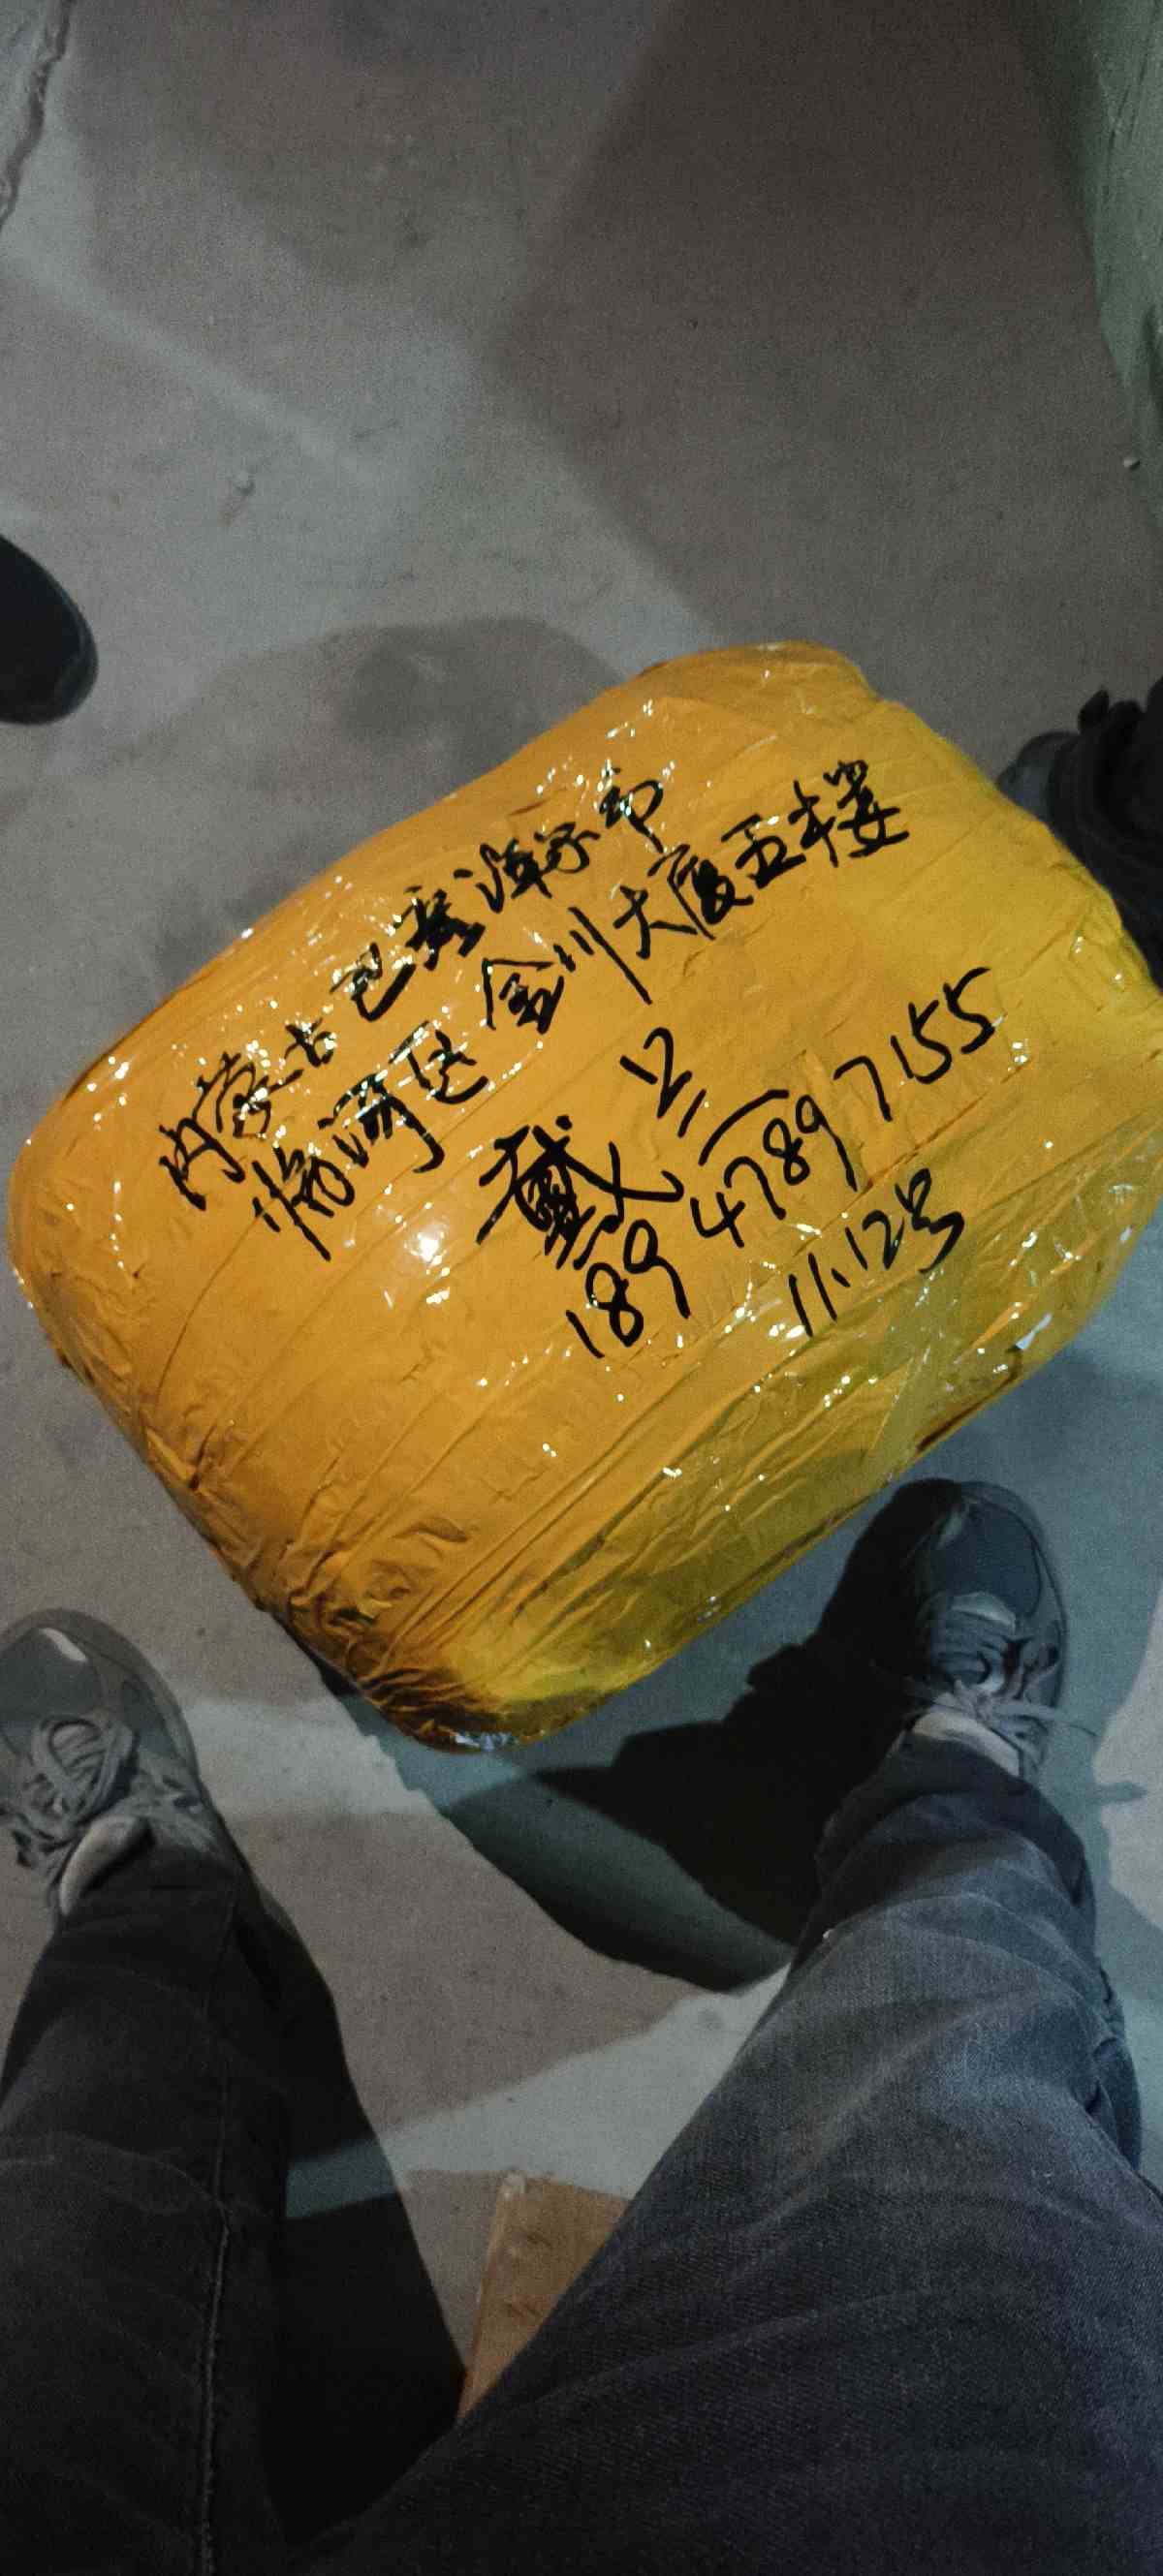 内蒙古巴彦淖尔市
临河区金川大厦五楼
戴
189 4789 7155
11.12号